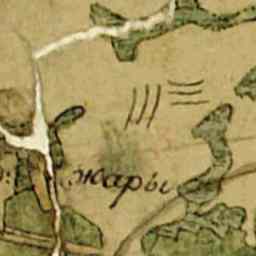 жары